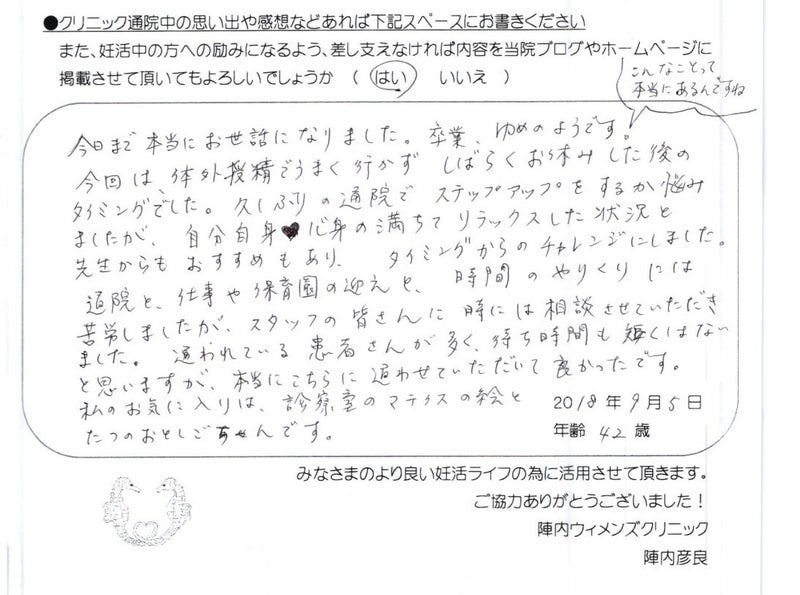 ●クリニック通院中の思い出や感想などあれば下記スペースにお書きください
また、妊活中の方への励みになるよう、差し支えなければ内容を当院ブログやホームページに
掲載させて頂いてもよろしいでしょうか （ はい いいえ ）
こんなことって
本当にあるんですね
今日まで本当にお世話になりました。卒業、ゆめのようです。
今回は、体外授精でうまく行かず しばらくお休みした後の
タイミングでした。久しぶりの通院で ステップアップをするか悩み
ましたが、自分自身♥心身の満ちてリラックスした状況と
先生からも おすすめもあり、 タイミングからのチャレンジにしました。
通院と、仕事や保育園の迎えと、時間のやりくりには
苦労しましたが、スタッフの皆さんに 時には相談させていただき
ました。通われている患者さんが多く、待ち時間も短くはない
と思いますが、本当にこちらに通わせていただいて良かったです。
私のお気に入りは、診察室のマティスの絵と
たつのおとしごさんです。
2018年9月5日
年齢 42 歳
みなさまのより良い妊活ライフの為に活用させて頂きます。
ご協力ありがとうございました！
陣内ウィメンズクリニック
陣内彦良